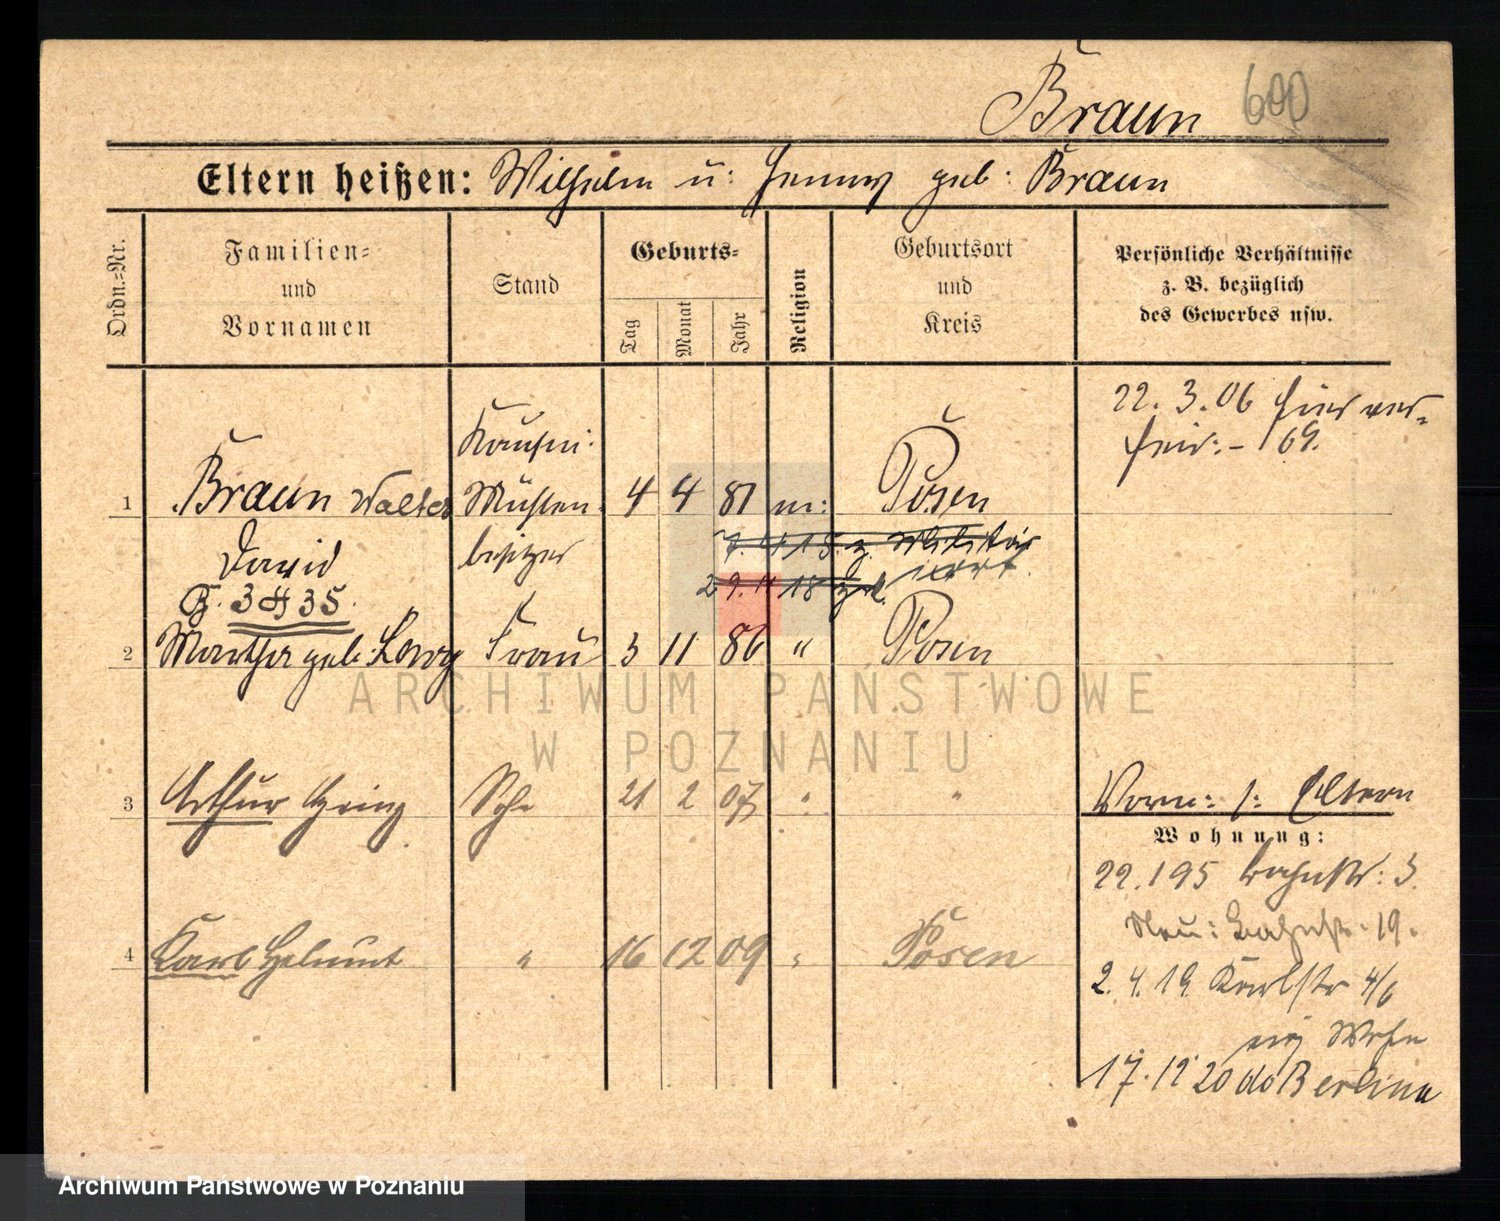 Braun 600
Eltern heißen: Wilhelm u: Jenny geb: Braun
Ordn.-Nr.
Familien-
und
Vornamen
Stand
Geburts-
Tag
Monat
Jahr
Religion
Geburtsort
und
Kreis
Persönliche Verhältnisse
z. B. bezüglich
des Gewerbes usw.
22. 3. 06 hier ver-
heir: - 169.
Kaufm:
1 Braun Walter Mühlen- 4 4 81 m: Posen
David besitzer
7. 4 15. z. Militär
G. 3 35.
29. 11 18 zk.
2 Martha geb: Lewy Frau 3 11 86 " Posen
ARCHIWUM PAŃSTWOWE
W POZNANIU
3 Arthur Heinz Sohn 21 2 07 " "
Vorn: s: Eltern
Wohnung:
22.195 Bahnstr: 3.
Neu: Bahnstr. 19.
4 Karl Helmut " 16 12 09 " Posen
2. 4. 19 Karlstr 4/6
eig Wohn
17. 12 20 do Berlin
Archiwum Państwowe w Poznaniu